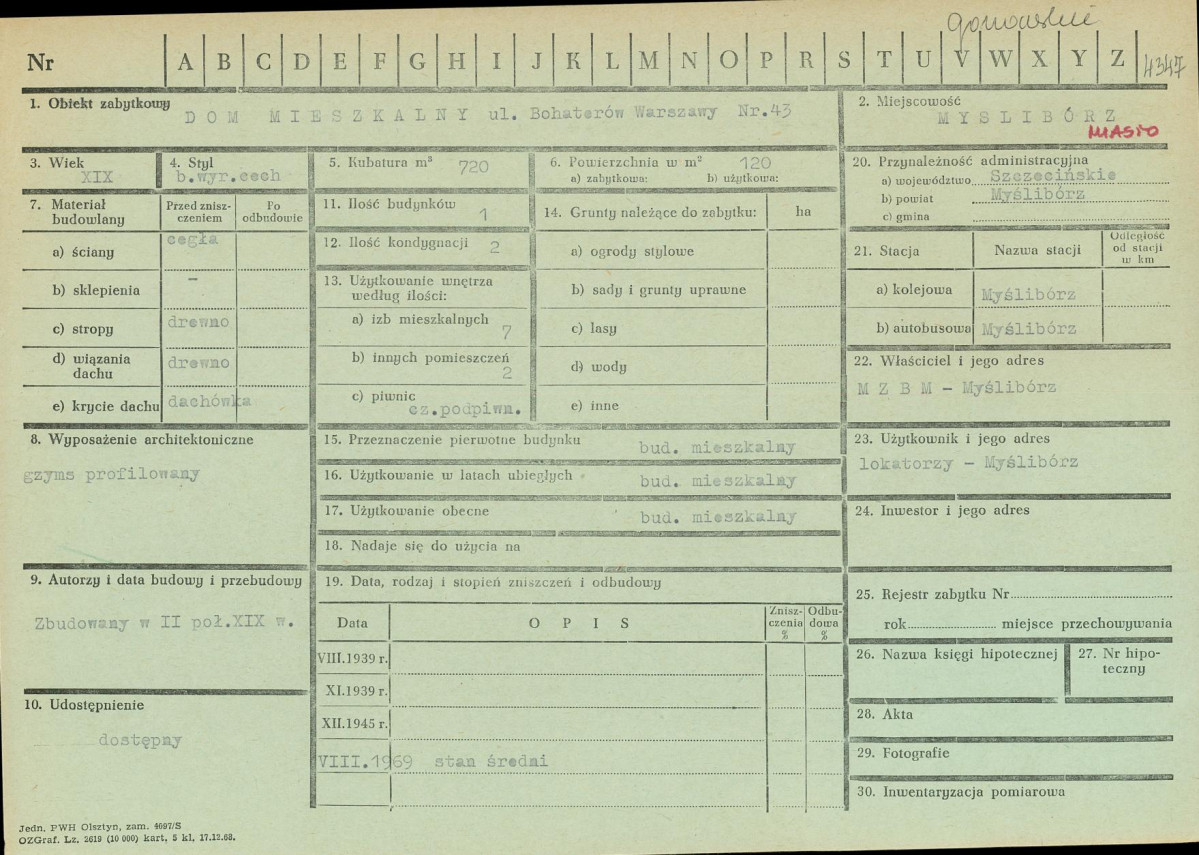 Nr A B C D E F G H I J K L M N O P R S T U V W X Y Z 4347
1. Obiekt zabytkowy
DOM MIESZKALNY ul. Bohaterów Warszawy Nr.43
2. Miejscowość
MYSLIBÓRZ
MIASTO
3. Wiek
XIX
4. Styl
b.wyr.cech
5. Kubatura m³ 720
6. Powierzchnia w m² 120
a) zabytkowa: b) użytkowa:
7. Materiał budowlany
Przed znisz-
czeniem
Po
odbudowie
a) ściany cegła
b) sklepienia –
c) stropy drewno
d) wiązania
dachu drewno
e) krycie dachu dachówka
8. Wyposażenie architektoniczne
gzyms profilowany
9. Autorzy i data budowy i przebudowy
Zbudowany w II poł.XIX w.
10. Udostępnienie
dostępny
11. Ilość budynków 1
12. Ilość kondygnacji 2
13. Użytkowanie wnętrza
według ilości:
a) izb mieszkalnych
7
b) innych pomieszczeń
2
c) piwnic
cz.podpiwn.
14. Grunty należące do zabytku: ha
a) ogrody stylowe
b) sady i grunty uprawne
c) lasy
d) wody
e) inne
15. Przeznaczenie pierwotne budynku bud. mieszkalny
16. Użytkowanie w latach ubiegłych bud. mieszkalny
17. Użytkowanie obecne bud. mieszkalny
18. Nadaje się do użycia na
19. Data, rodzaj i stopień zniszczeń i odbudowy
Data OPIS
Znisz-
czenia
%
Odbu-
dowa
%
VIII.1939 r.
XI.1939 r.
XII.1945 r.
VIII.1969 stan średni
20. Przynależność administracyjna
a) województwo Szczecińskie
b) powiat Myślibórz
c) gmina
21. Stacja Nazwa stacji
Odległość
od stacji
w km
a) kolejowa Myślibórz
b) autobusowa Myślibórz
22. Właściciel i jego adres
M Z B M – Myślibórz
23. Użytkownik i jego adres
lokatorzy – Myślibórz
24. Inwestor i jego adres
25. Rejestr zabytku Nr
rok miejsce przechowywania
26. Nazwa księgi hipotecznej
27. Nr hipo-
teczny
28. Akta
29. Fotografie
30. Inwentaryzacja pomiarowa
Jedn. PWH Olsztyn, zam. 4697/S
OZGraf. Lz. 2619 (10 000) kart. 5 kl. 17.12.68.